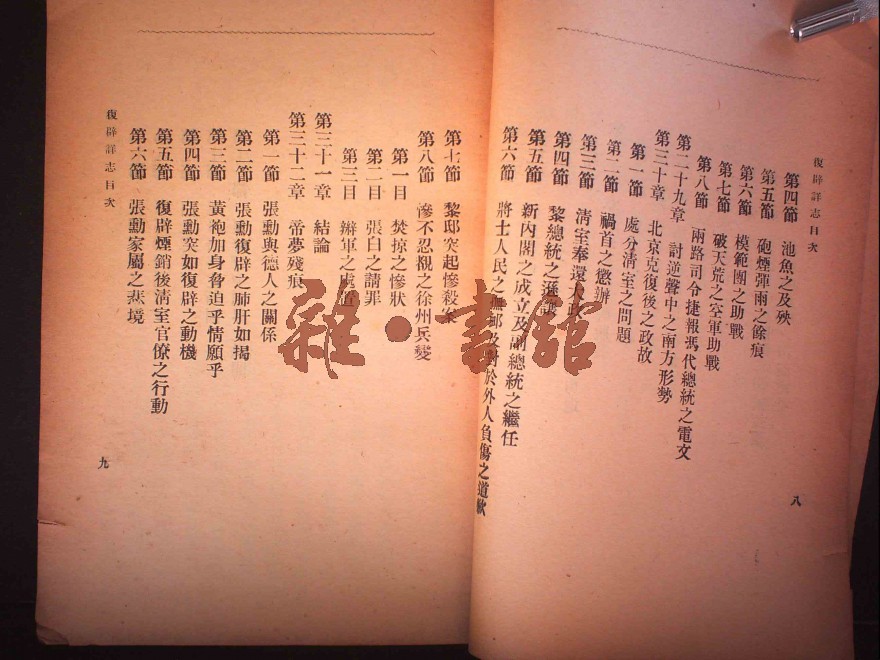 復辟詳志目次
第四節 池魚之及殃
第五節 砲煙彈雨之餘痕
第六節 模範團之助戰
第七節 破天荒之空軍助戰
第八節 兩路司令捷報馮代總統之電文
第二十九章 討逆聲中之南方形勢
第三十章 北京克復後之政故
第一節 處分清室之問題
第二節 禍首之懲辦
第三節 清室奉還大政
第四節 黎總統之遜
第五節 新內閣之成立及副總統之繼任
第六節 將士人民之撫卹及對於外人負傷之道歉
八
第七節 黎邸突起慘殺案
第八節 慘不忍覩之徐州兵變
第一目 焚掠之慘狀
第二目 張白之請罪
第三目 辮軍之處
第三十一章 結論
第三十二章 帝夢殘痕
第一節 張勳與德人之關係
第二節 張勳復辟之肺肝如揭
第三節 黃袍加身脅迫乎情願乎
第四節 張勳突如復辟之動機
第五節 復辟煙銷後清室官僚之行動
第六節 張勳家屬之悲境
復辟詳志目次
九
雜·書館